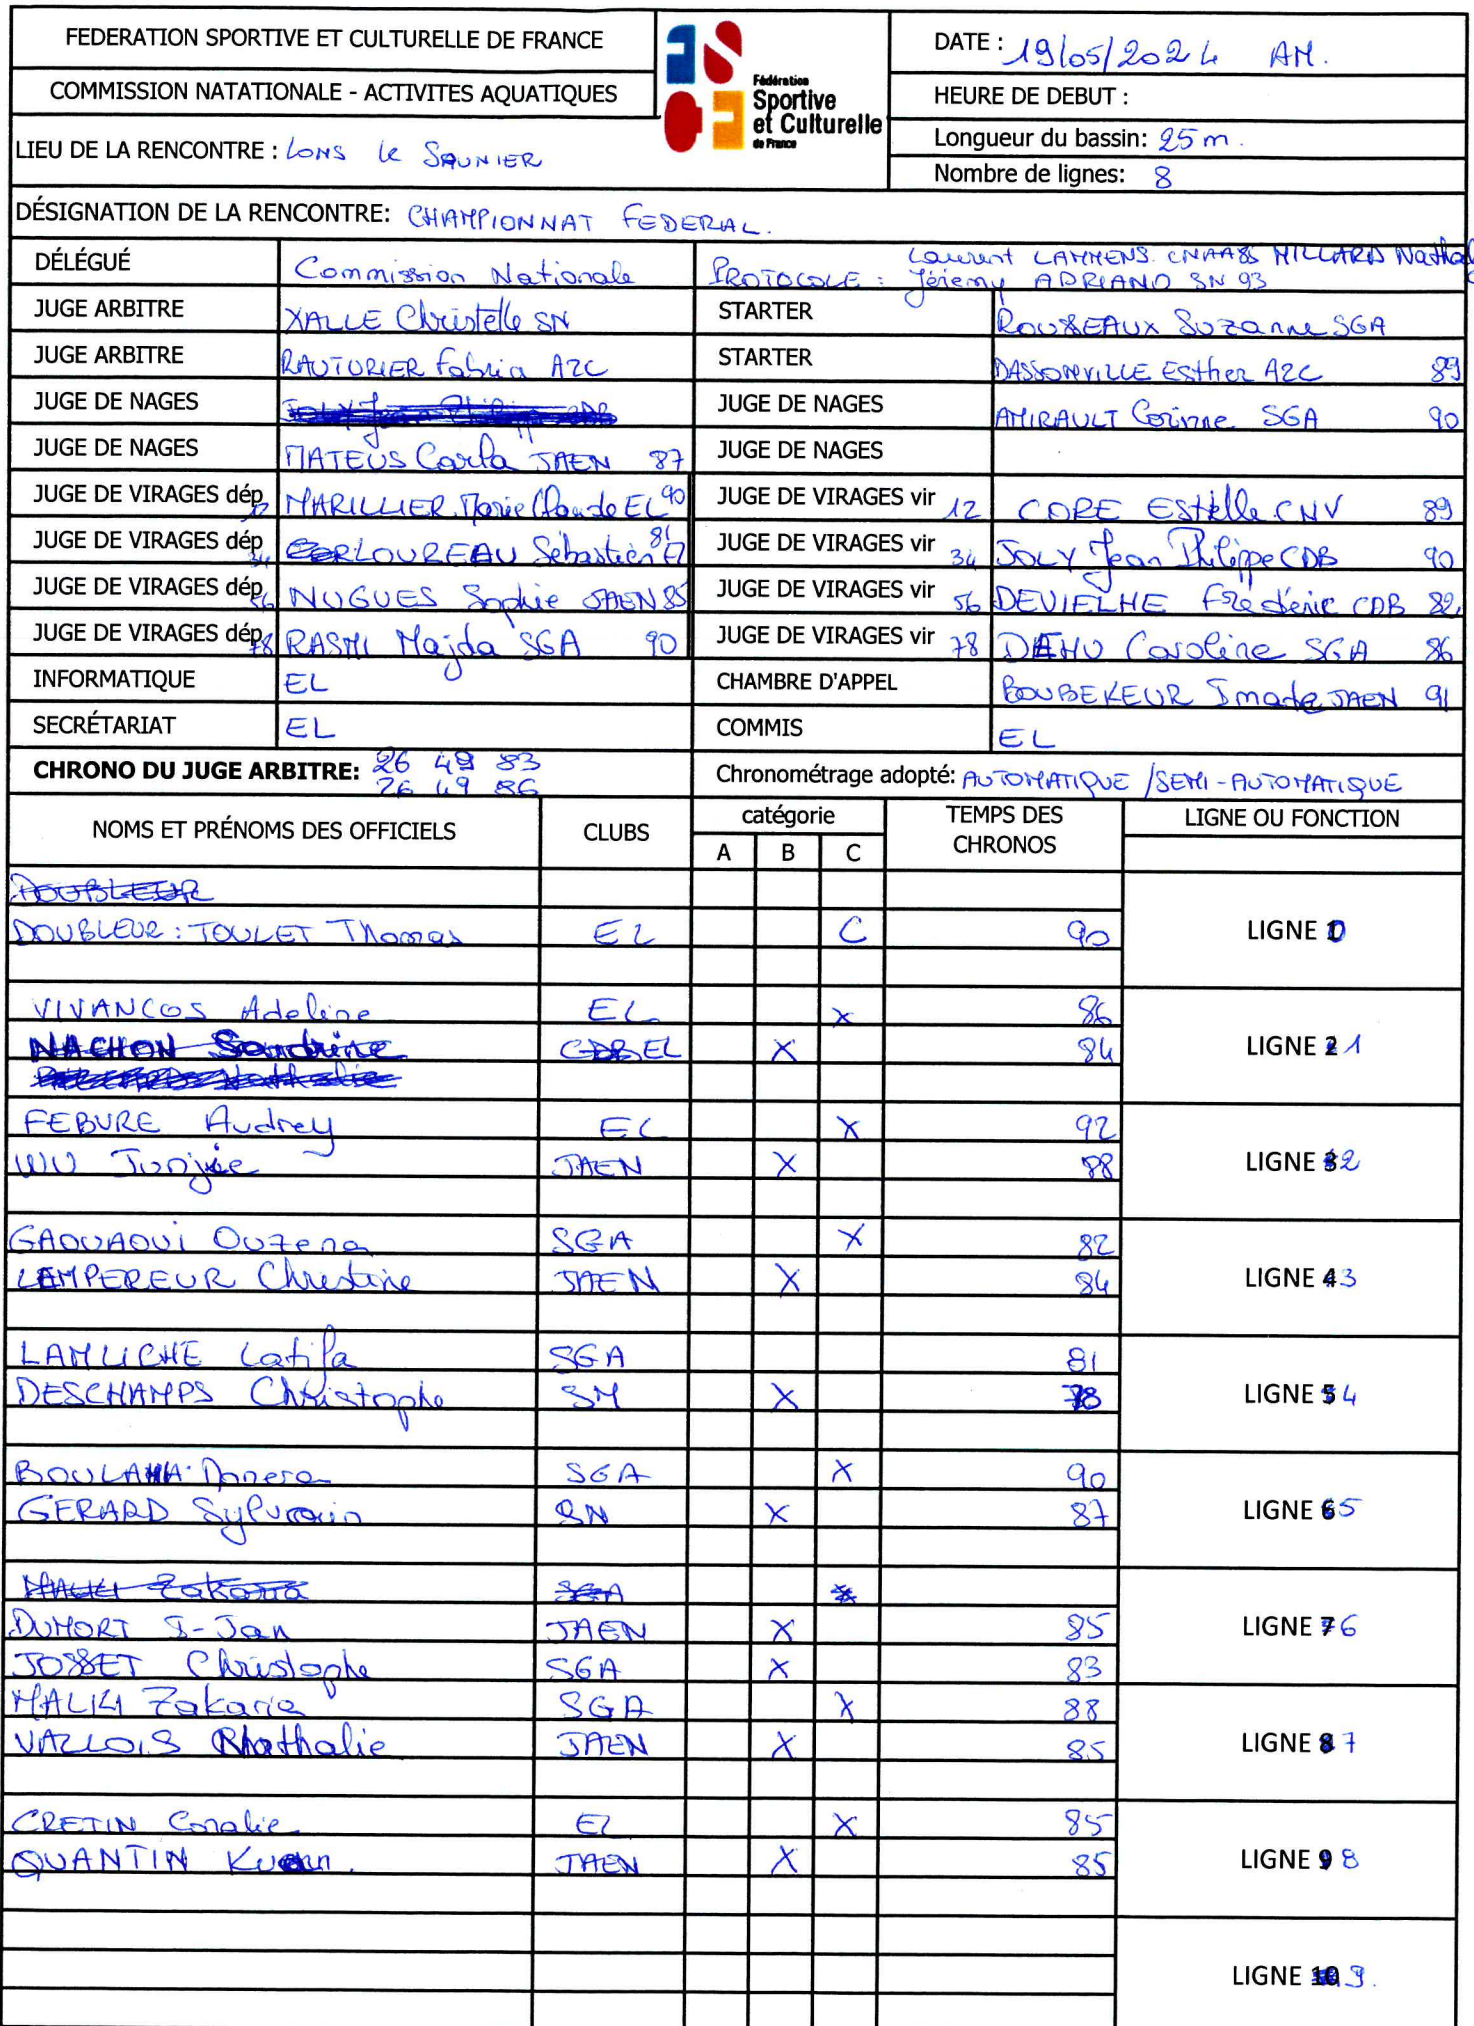 FEDERATION SPORTIVE ET CULTURELLE DE FRANCE
COMMISSION NATATIONALE - ACTIVITES AQUATIQUES
Fédération
Sportive
et Culturelle
de France
DATE : 19/05/2024 AM.
HEURE DE DEBUT :
Longueur du bassin: 25 m.
Nombre de lignes: 8
LIEU DE LA RENCONTRE : LONS le SAUNIER
DÉSIGNATION DE LA RENCONTRE: CHAMPIONNAT FEDERAL.
DÉLÉGUÉ Commission Nationale
Laurent LAMMENS CNAA88 MILLARD
PROTOCOLE : Jérémy ADRIANO SN 93
JUGE ARBITRE XALLE Christelle SN STARTER ROUSSEAUX Suzanne SGA
JUGE ARBITRE RAUTURIER Fabria A2C STARTER DASSONVILLE Esther A2C 89
JUGE DE NAGES JOLY Jean Philippe CDB JUGE DE NAGES AMIRAULT Corinne SGA 90
JUGE DE NAGES MATEUS Carla JAEN 87 JUGE DE NAGES
JUGE DE VIRAGES dép 12 MARILLIER Marie Claude EL 90 JUGE DE VIRAGES vir 12 CORE Estelle CNV 89
JUGE DE VIRAGES dép 34 LOUREAU Sébastien EL 81 JUGE DE VIRAGES vir 34 JOLY Jean Philippe CDB 90
JUGE DE VIRAGES dép 56 NUGUES Sophie JAEN 85 JUGE DE VIRAGES vir 56 DEVIELHE Frédéric CDB 82
JUGE DE VIRAGES dép 78 RASMI Majda SGA 90 JUGE DE VIRAGES vir 78 DEHU Caroline SGA 86
INFORMATIQUE EL CHAMBRE D'APPEL BOUBEKEUR Imade JAEN 91
SECRÉTARIAT EL COMMIS EL
CHRONO DU JUGE ARBITRE: 26 49 83
26 49 86
Chronométrage adopté: AUTOMATIQUE / SEMI-AUTOMATIQUE
NOMS ET PRÉNOMS DES OFFICIELS CLUBS catégorie TEMPS DES CHRONOS LIGNE OU FONCTION
A B C
DOUBLEUR
DOUBLEUR : TOULET Thomas EL C 90 LIGNE 0
VIVANCOS Adeline EL x 86
NACHON Sandrine EL X 84 LIGNE 1
FEBURE Audrey EL X 92
WU Junjie JAEN X 88 LIGNE 2
GAOUAOUI Ouzena SGA X 82
LEMPEREUR Christine JAEN X 84 LIGNE 3
LAMLICHE Latifa SGA 81
DESCHAMPS Christophe SM X 78 LIGNE 4
BOULAHA SGA X 90
GERARD Sylvain SN X 87 LIGNE 5
MALIKI Zakaria SGA x
DUMORT JAEN X 85 LIGNE 6
JOSSET Christophe SGA X 83
MALIKI Zakaria SGA X 88
VALLOIS Nathalie JAEN X 85 LIGNE 7
CRETIN Coralie EL X 85
QUANTIN JAEN X 85 LIGNE 8
LIGNE 9.